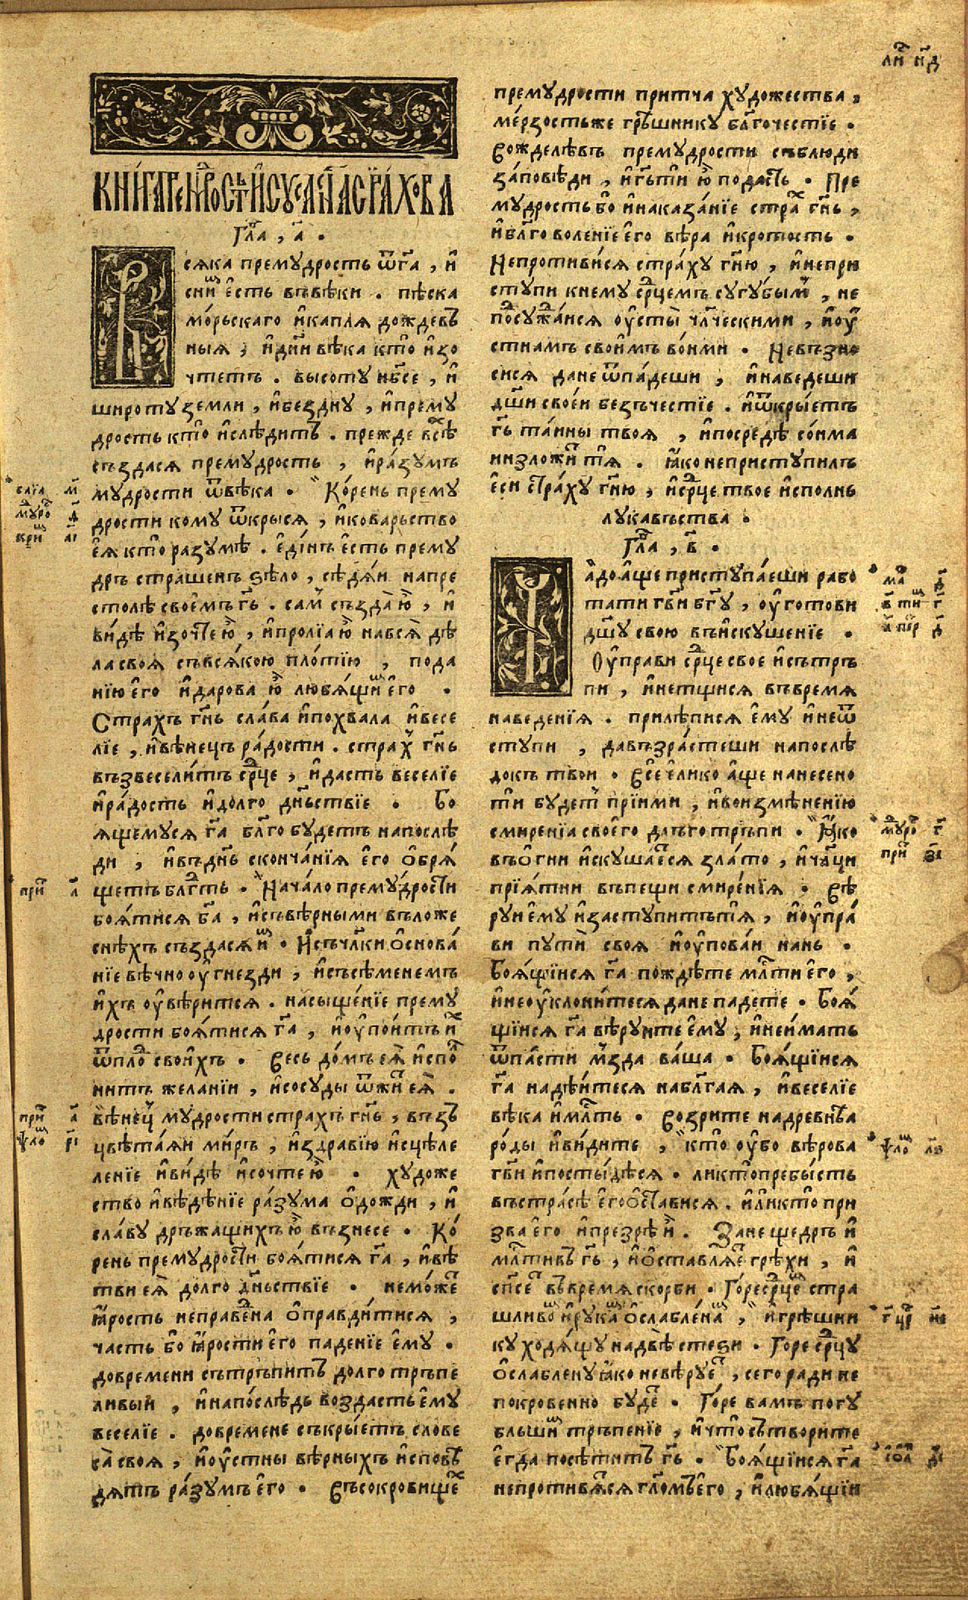 КНИГА ПРЕМОУДРОСТИ ИСУСА СНА СИРАХОВА
Гла҃, а҃.
Всяка премудрость ѿ га҃, и҆
сни́мъ е҆сть въвѣки. пѣска
мо́рьскаго и҆каплѧ дождевъ
ныѧ, и҆дн҃и вѣка кто̀ и҆зо
чтетъ. высоту нб҃се, и҆
широту земли, и҆бездну, и҆прему
дрость кто̀ и҆слѣдитъ. прежде всѣ́
създасѧ премудрость, и҆ра́зумъ
мудрости ѿвѣка. Ко́рень прему
дрости кому ѿкрысѧ, и҆коварьство
е҆ѧ̀ кто̀ разумѣ. е҆ди́нъ е҆сть прему
дръ стра́шенъ ѕѣло, сѣдѧ́и напре
столѣ свое́мъ гь҃. са́мъ създа̀ ю҆̀, и҆
ви́дѣ и҆зо́чте ю҆̀, и҆пролїа̀ ю҆̀ навсѧ̀ дѣ
ла своѧ̀ съвсѧ́кою пло́тїю, пода
нїю е҆го̀ и҆дарова ю҆̀ любѧ́щимъ е҆го̀.
Страхъ гн҃ь сла́ва и҆похвала и҆весе
лїе, и҆вѣ́нецъ ра́дости. страхъ гн҃ь
възвеселитъ ср҃це, и҆дасть веселїе
и҆ра́дость и҆до́лго дн҃ьствїе. Бо
ѧщемусѧ га҃ бл҃го будетъ напослѣ
ди, и҆въдн҃ь сконча́нїѧ е҆го̀ ѡ҆брѧ́
щетъ бл҃гть. Нача́ло прему́дрости
боѧ́тисѧ ба҃, и҆съвѣ́рными въложе
снѣхъ създасѧ и҆мъ. И҆съчл҃ки ѻ҆снова́
нїе вѣ́чно оу҆гнезди, и҆съсѣ́менемъ
и҆́хъ оу҆вѣ́ритсѧ. насыще́нїе прему
дрости боѧ́тисѧ га҃, и҆оу҆пои́тъ и҆́хъ
ѿпло́дъ свои́хъ. Весь до́мъ еѧ̀ и҆спо́л
нитъ жела́нїи, и҆сосуды ѿжи́тъ еѧ̀.
вѣнецъ мудрости стра́хъ гн҃ь, въз
цвѣта́ѧи ми́ръ, и҆здра́вїю и҆сцѣ́ле
ленїе и҆ви́дѣ и҆сочте ю҆̀. художе
ство и҆вѣ́дѣнїе ра́зума ѻ҆дожди, и҆
сла́ву дръжа́щихъ ю҆̀ възнесе. Ко́
рень премудрости боѧ́тисѧ га҃, и҆вѣ́
тви еѧ̀ долго дн҃ьствїе. немо́жетъ
ꙗ҆́рость непра́ведна ѻ҆правди́тисѧ,
часть бо ꙗ҆́рости е҆го̀ паденїе е҆му.
довремени сътръпитъ долго тръпе
ливый, и҆напо́слѣдь воздасть е҆му
веселїе. довремене съкры́етъ слове
са̀ своѧ̀, и҆оу҆стны вѣ́рныхъ и҆сповѣ
дѧтъ ра́зумъ е҆го̀. Въсокровищехъ
премудрости притча художества,
ме́рзость же грѣшнику бл҃гоче́стїе.
Вожделѣвъ премудрости съблюди
за́повѣди, и҆гь҃ ти ю҆̀ пода́сть. Пре
мудрость бо и҆наказа́нїе стра́хъ гн҃ь,
и҆бл҃говоленїе е҆го̀ вѣ́ра и҆кротость.
Непроти́висѧ стра́ху гн҃ю, и҆непри
ступи кнему ср҃цемъ сугубымъ, не
посужа́исѧ оу҆сты̀ чл҃ческими, и҆оу҆
стнамъ свои́мъ во́нми. Невъзно
сисѧ дане ѿпа́деши, и҆наведеши
дш҃и своеи безъче́стїе. и҆ѿкры́етъ
гь҃ та́ины твоѧ̀, и҆посредѣ со́нма
низложи́тъ тѧ̀. ꙗ҆ко неприступилъ
еси стра́ху гн҃ю, и҆ср҃це твое и҆сполнь
лука́вьства.
Гла҃, в҃.
Чадо а҆ще приступа́еши рабо
тати гв҃и бг҃у, оу҆готови
дш҃у свою въи҆скушенїе.
Оу҆прави ср҃це свое и҆сътръ
пи, и҆нетщисѧ въвремѧ
наведенїѧ. прилѣписѧ е҆му и҆неѿ
ступи, давъзра́стеши напослѣ
докъ твои. Все е҆лико а҆ще нанесено
ти будетъ прїими, и҆воизмѣненїю
смиренїѧ своего длъго тръпи. Ꙗ҆ко
въо҆гни и҆скуша́етсѧ зла́то, и҆чл҃цы
прїѧтни въпещи смире́нїѧ. Вѣ
руи е҆му и҆заступитъ тѧ̀, и҆оу҆пра́
ви пути своѧ и҆оу҆пова́и нань.
Боѧ́щїисѧ га҃ пождѣте мл҃ти е҆го̀,
и҆неоу҆клонитесѧ дане падете. Боѧ́
щїисѧ га҃ вѣ́руите е҆му, и҆неи́мать
ѿпа́сти мзда ва́ша. Боѧ́щїисѧ
га҃ надѣ́итесѧ набл҃гаѧ, и҆веселїе
вѣка и҆мл҃ть. Возрите надревнѧѧ
ро́ды и҆ви́дите, кто̀ оу҆бо вѣ́рова
гв҃и и҆посты́дѣсѧ. ли кто̀ пребысть
въстра́сѣ е҆го̀ и҆ѻ҆ста́висѧ. и҆ли кто̀ при
зва е҆го̀ и҆презрѣ и҆̀. Зане щедръ и҆
мл҃тивъ гь҃, и҆ѻ҆ставлѧ́етъ грѣхи, и҆
сп҃сетъ въвремѧ скорби. Го́ре ср҃цемъ стра
шливомъ и҆рукамъ ѻ҆слабленамъ, и҆грѣшни
ку ходѧ́щу надвѣ̀ стеѕи. Горе ср҃цу
ѻ҆слаблену ꙗ҆ко невѣруетъ, сего ради не
покровенно будетъ. Го́ре вамъ погу
бльшимъ тръпенїе, и҆что̀ сътворите
е҆гда посѣтитъ гь҃. Боѧ́щїисѧ га҃
непротивѧтсѧ гл҃омъ е҆го̀, и҆любѧ́щїи